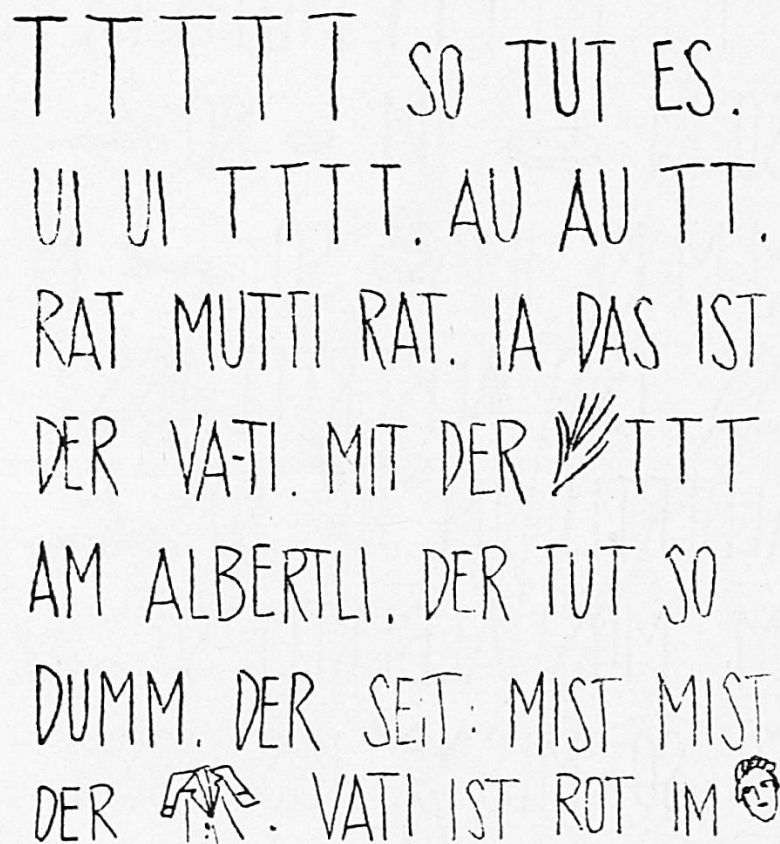 T T T T T SO TUT ES.
UI UI T T T T. AU AU T T.
RAT MUTTI RAT. IA DAS IST
DER VA-TI. MIT DER T T T
AM ALBERTLI. DER TUT SO
DUMM. DER SEIT: MIST MIST
DER . VATI IST ROT IM